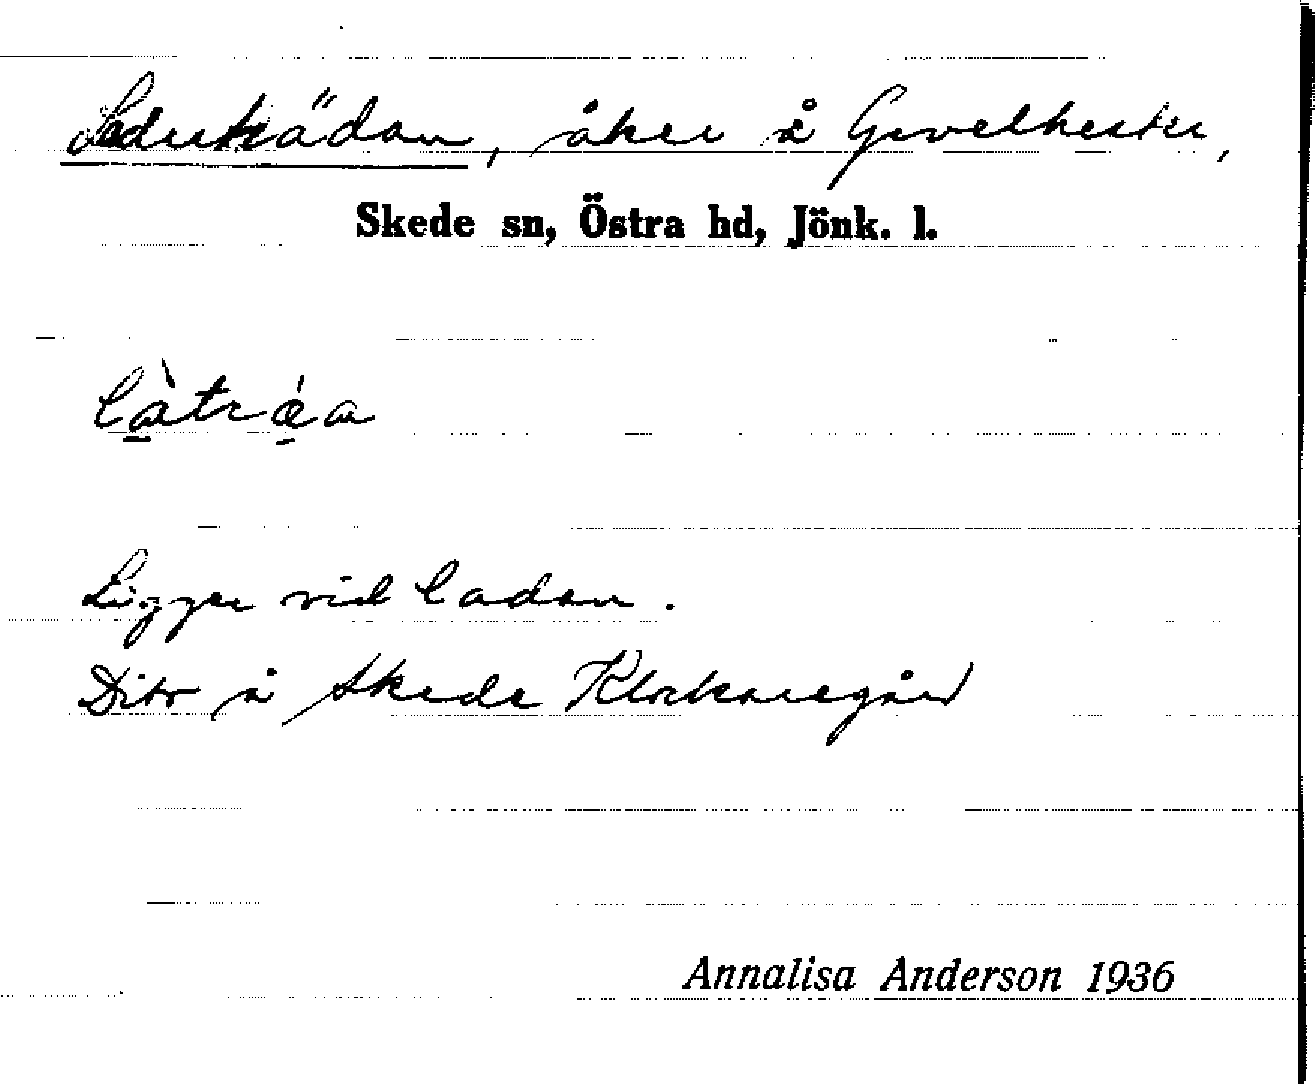 Ladusträdan, åker å Gevelhester,
Skede sn, Östra hd, Jönk. l.
làtrǽa
Ligger vid ladan.
Dito å Skede Klockaregård
Annalisa Anderson 1936